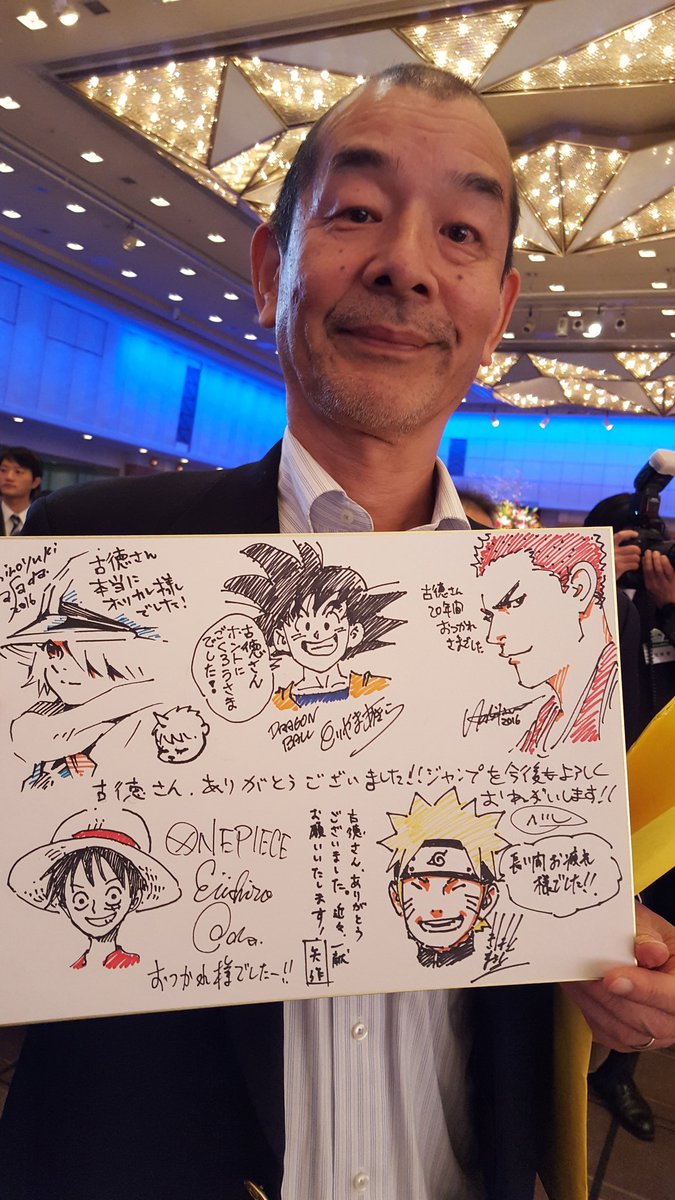 2016
古徳さん
本当に
オツカレ様
でした!
古徳さん
ホントに
ごくろうさま
でした!
DRAGON
BALL
古徳さん
20年間
おつかれ
さまでした
2016
古徳さん、ありがとうございました!!ジャンプを今後もよろしく
おねがいします!!
ONEPIECE
Eiichiro
Oda.
おつかれ様でしたー!!
古徳さんありがとう
ございました。近々、一献
お願いいたします!
矢作
長い間お疲れ
様でした!!